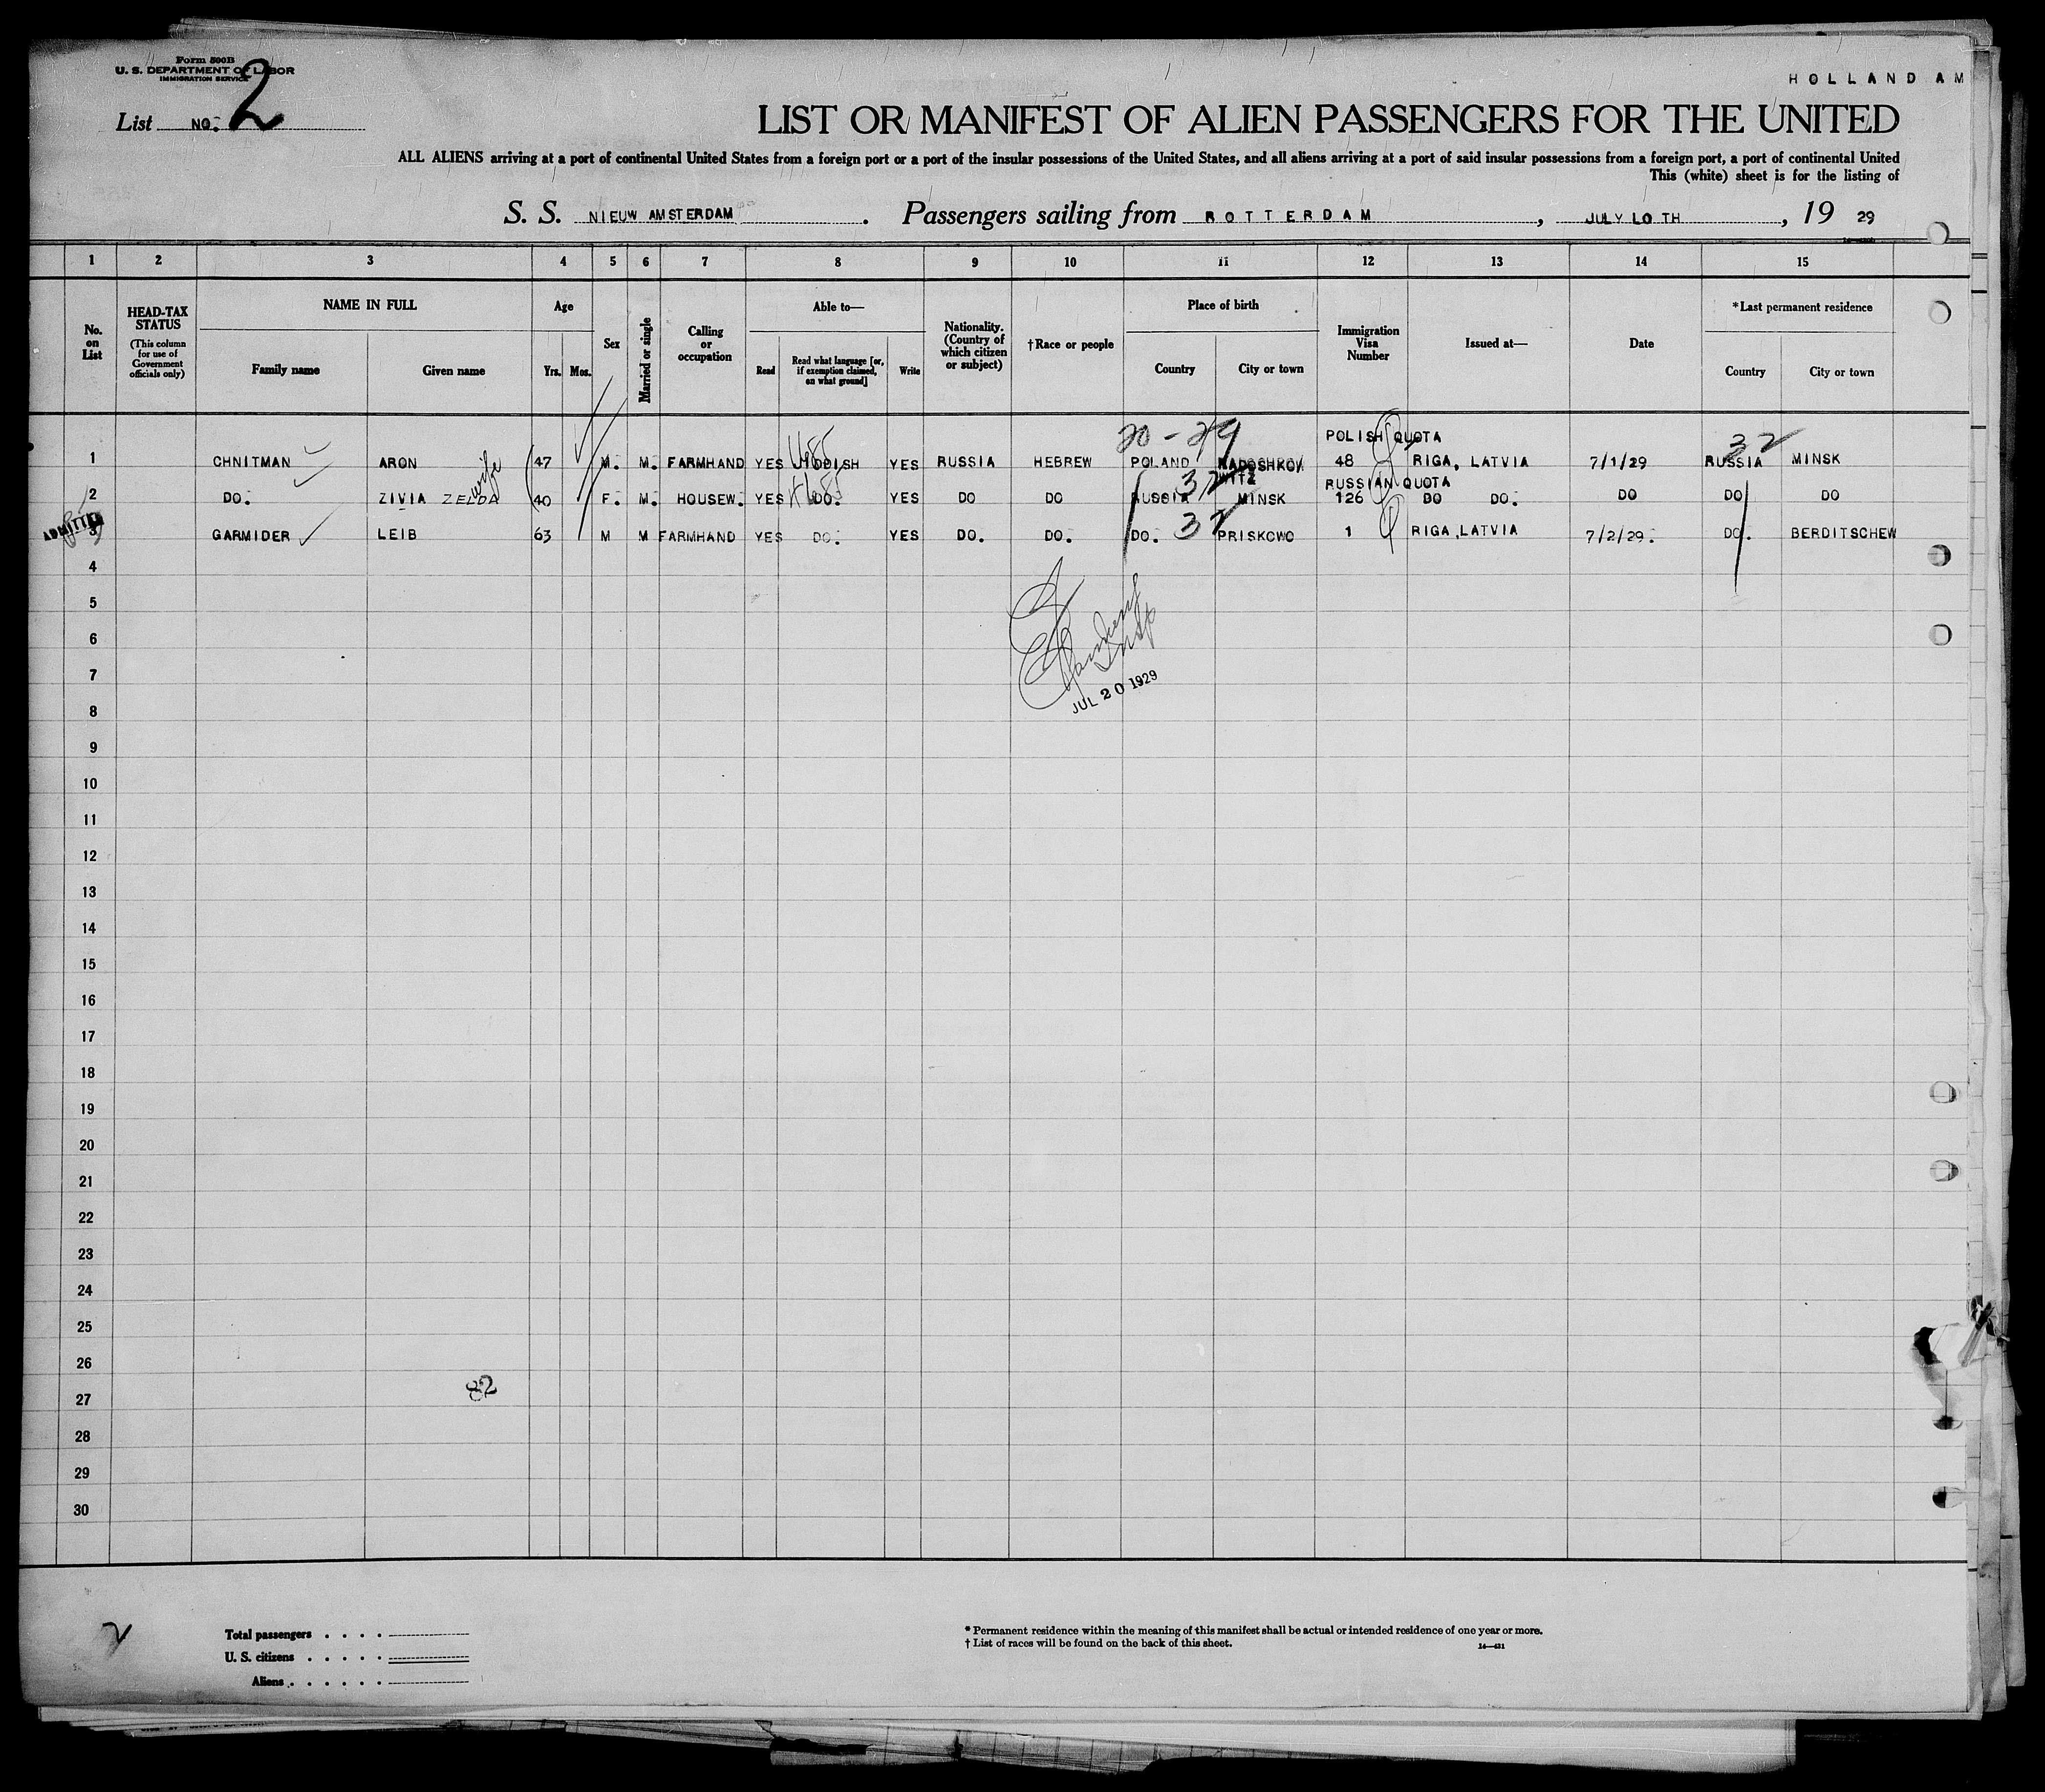 Form 500B
U. S. DEPARTMENT OF LABOR
IMMIGRATION SERVICE
HOLLAND AM
List NO. 2
LIST OR MANIFEST OF ALIEN PASSENGERS FOR THE UNITED
ALL ALIENS arriving at a port of continental United States from a foreign port or a port of the insular possessions of the United States, and all aliens arriving at a port of said insular possessions from a foreign port, a port of continental United
This (white) sheet is for the listing of
S. S. NIEUW AMSTERDAM. Passengers sailing from ROTTERDAM, JULY 10 TH, 19 29
1 2 3 4 5 6 7 8 9 10 11 12 13 14 15
No. on List
HEAD-TAX STATUS (This column for use of Government officials only)
NAME IN FULL
Family name Given name
Age
Yrs. Mos.
Sex
Married or single
Calling or occupation
Able to—
Read Read what language [or, if exemption claimed, on what ground] Write
Nationality. (Country of which citizen or subject)
†Race or people
Place of birth
Country City or town
Immigration Visa Number
Issued at—
Date
*Last permanent residence
Country City or town
20-29 POLISH QUOTA 32
1 CHNITMAN ARON 47 M. M. FARMHAND YES YIDDISH YES RUSSIA HEBREW POLAND RADOSHKOW 48 RIGA, LATVIA 7/1/29 RUSSIA MINSK
wife 32 WITZ RUSSIAN QUOTA
2 DO. ZIVIA ZELDA 40 F. M. HOUSEW. YES DO. YES DO DO RUSSIA MINSK 126 DO DO. DO DO DO
ADMITTED
3 GARMIDER LEIB 63 M M FARMHAND YES DO. YES DO. DO. DO. 32 PRISKOWO 1 RIGA,LATVIA 7/2/29. DO. BERDITSCHEW
4
5
6
7
JUL 20 1929
8
9
10
11
12
13
14
15
16
17
18
19
20
21
22
23
24
25
26
82
27
28
29
30
2
Total passengers
U. S. citizens
Aliens
* Permanent residence within the meaning of this manifest shall be actual or intended residence of one year or more.
† List of races will be found on the back of this sheet.
14—431